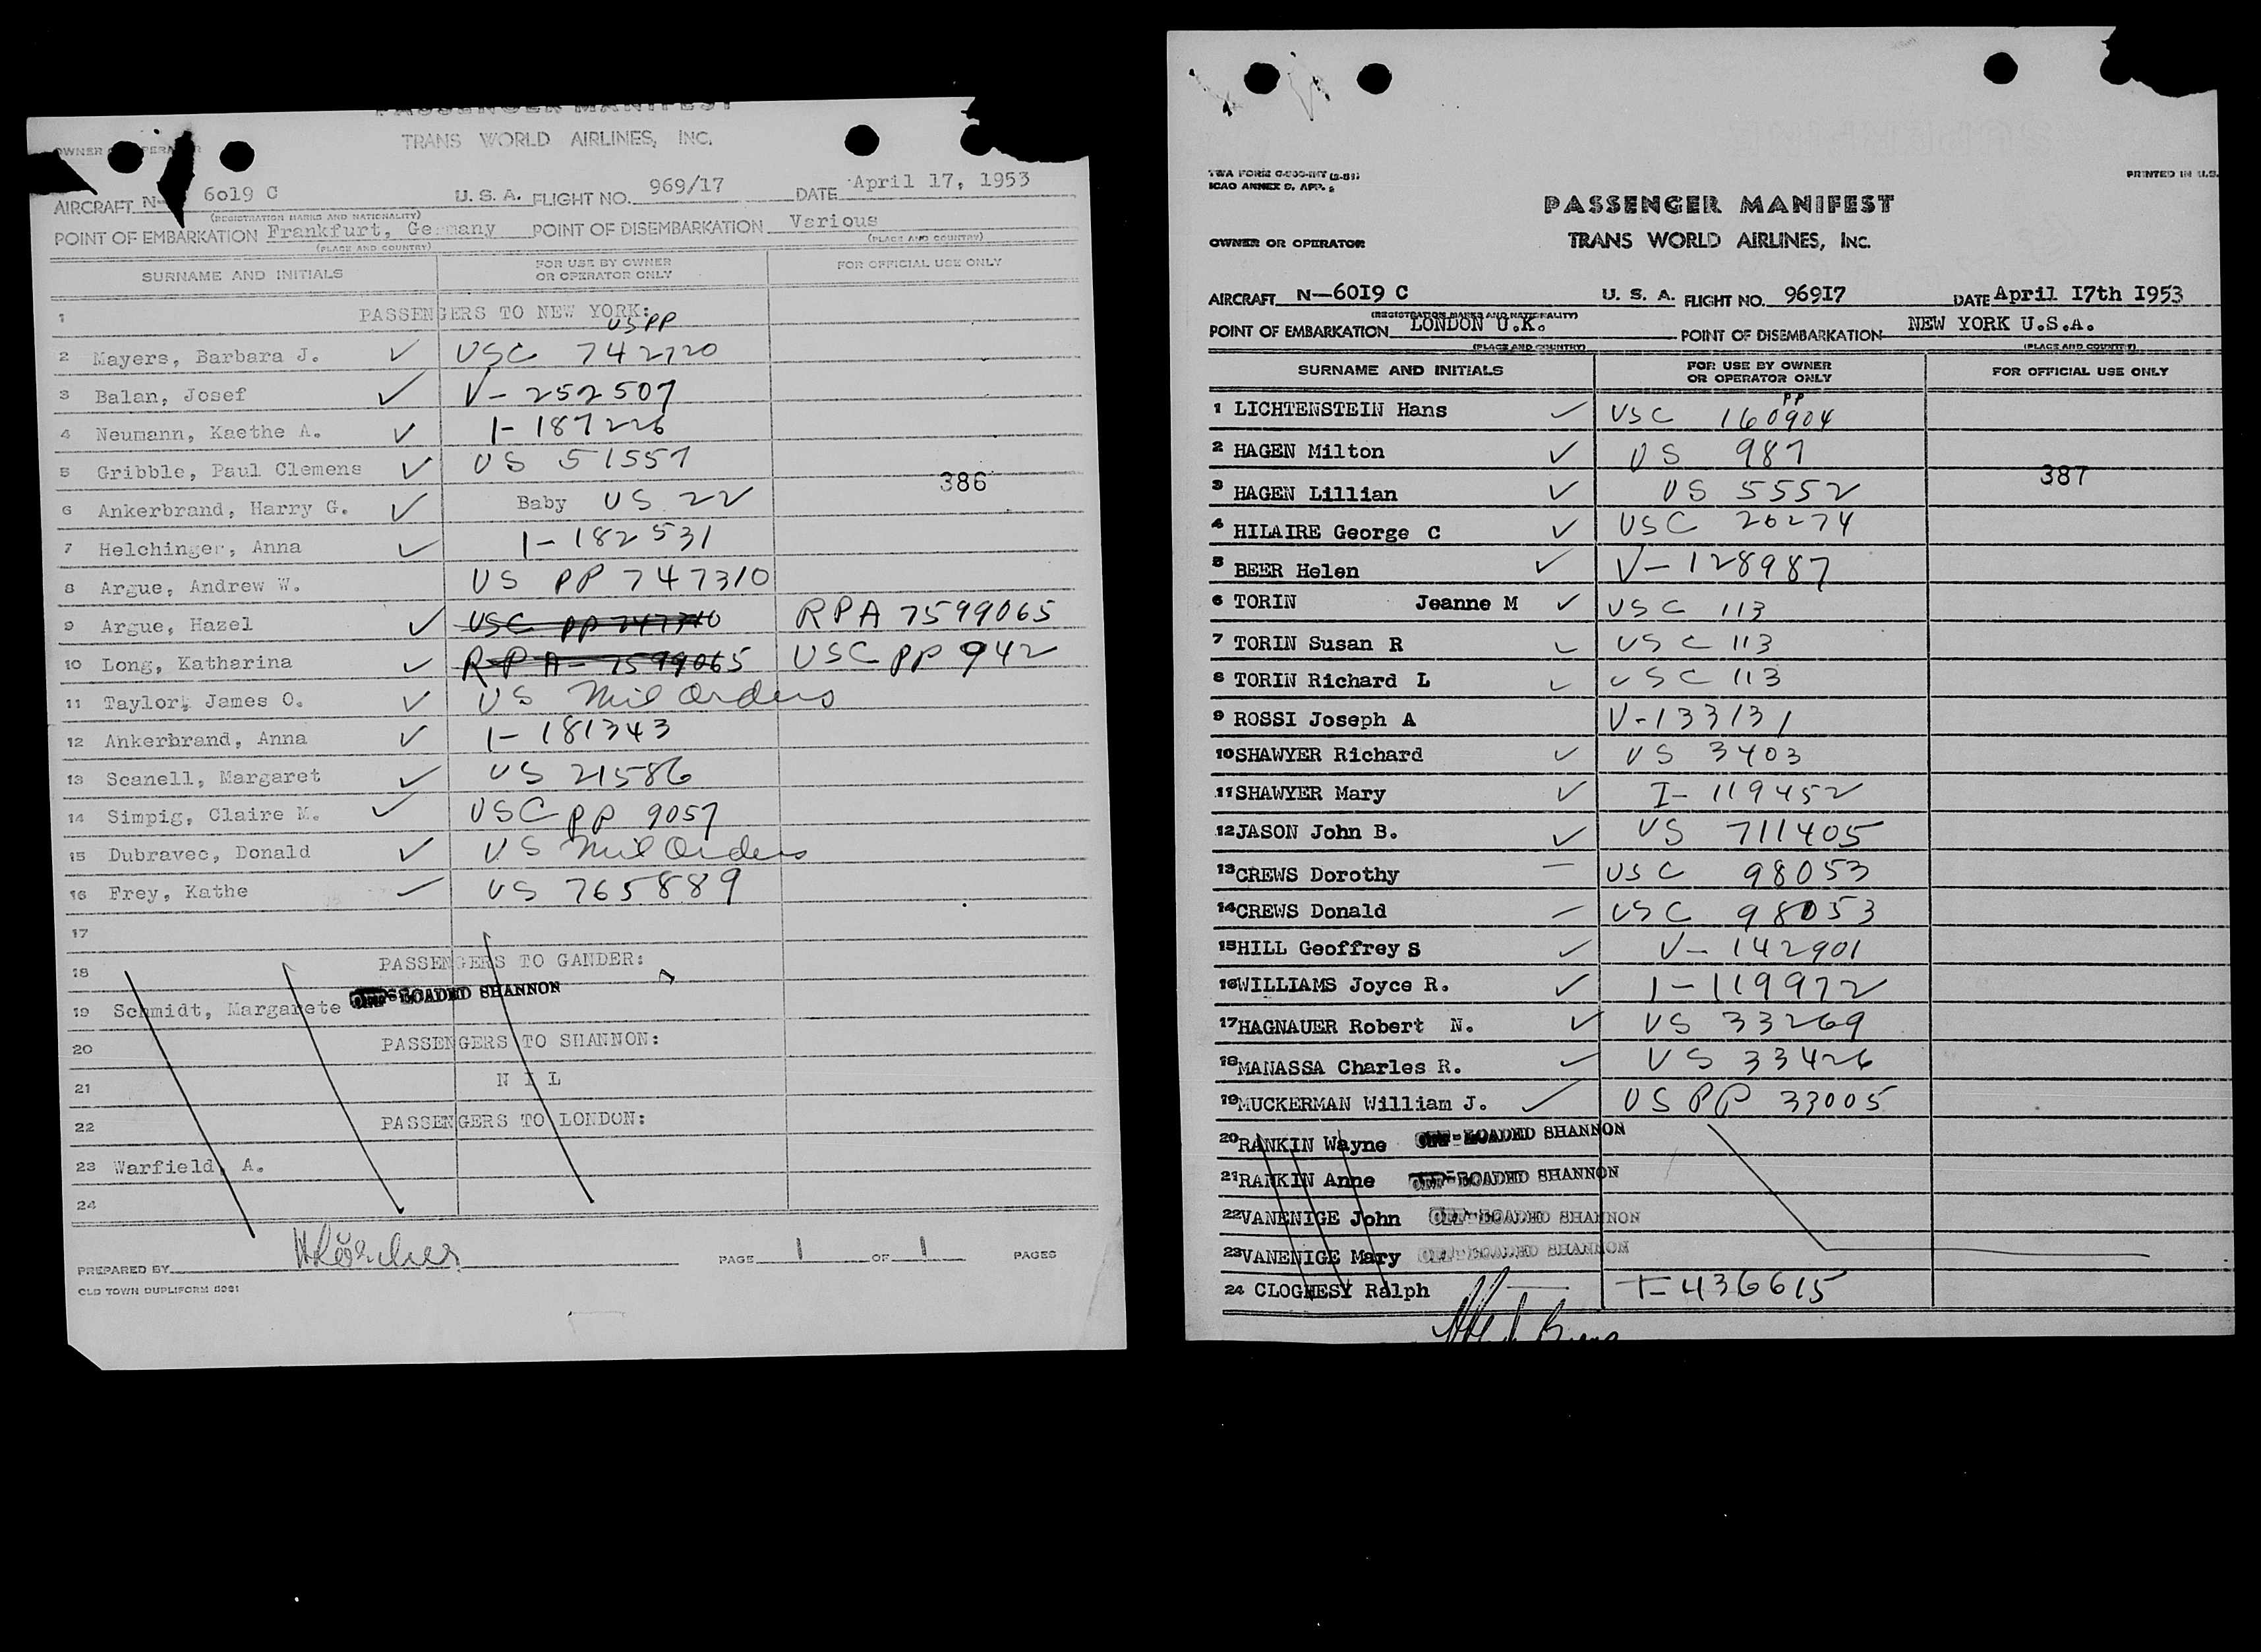 PASSENGER MANIFEST
TRANS WORLD AIRLINES, INC.
OWNER OPERATOR
AIRCRAFT N- 6019 C U. S. A. FLIGHT NO. 969/17 DATE April 17, 1953
(REGISTRATION MARKS AND NATIONALITY)
POINT OF EMBARKATION Frankfurt, Germany POINT OF DISEMBARKATION Various
(PLACE AND COUNTRY) (PLACE AND COUNTRY)
SURNAME AND INITIALS FOR USE BY OWNER OR OPERATOR ONLY FOR OFFICIAL USE ONLY
1 PASSENGERS TO NEW YORK:
US PP
2 Mayers, Barbara J. ✓ USC 742720
3 Balan, Josef ✓ V- 252507
4 Neumann, Kaethe A. ✓ I- 187226
5 Gribble, Paul Clemens ✓ US 51557
386
6 Ankerbrand, Harry G. ✓ Baby US 22
7 Helchinger, Anna ✓ I- 182531
8 Argue, Andrew W. US PP 747310
9 Argue, Hazel ✓ USC PP 747310 RPA 7599065
10 Long, Katharina ✓ RPA- 7599065 USC PP 942
11 Taylor, James O. ✓ US Mil Orders
12 Ankerbrand, Anna ✓ I- 181343
13 Scanell, Margaret ✓ US 21586
14 Simpig, Claire M. ✓ USC PP 9057
15 Dubravec, Donald ✓ US Mil Orders
16 Frey, Kathe ✓ US 765889
17
18 PASSENGERS TO GANDER:
19 Schmidt, Margarete OFF-LOADED SHANNON
20 PASSENGERS TO SHANNON:
21 N I L
22 PASSENGERS TO LONDON:
23 Warfield, A.
24
PREPARED BY PAGE 1 OF 1 PAGES
OLD TOWN DUPLIFORM
TWA FORM
ICAO ANNEX 9, APP.
PRINTED IN U.S.
PASSENGER MANIFEST
OWNER OR OPERATOR TRANS WORLD AIRLINES, INC.
AIRCRAFT N-6OI9 C U. S. A. FLIGHT NO. 969I7 DATE April I7th I953
(REGISTRATION MARKS AND NATIONALITY)
POINT OF EMBARKATION LONDON U.K. POINT OF DISEMBARKATION NEW YORK U.S.A.
(PLACE AND COUNTRY) (PLACE AND COUNTRY)
SURNAME AND INITIALS FOR USE BY OWNER OR OPERATOR ONLY FOR OFFICIAL USE ONLY
PP
1 LICHTENSTEIN Hans ✓ USC 160904
2 HAGEN Milton ✓ US 987
387
3 HAGEN Lillian ✓ US 5552
4 HILAIRE George C ✓ USC 26274
5 BEER Helen ✓ V- 128987
6 TORIN Jeanne M ✓ USC 113
7 TORIN Susan R ✓ USC 113
8 TORIN Richard L ✓ USC 113
9 ROSSI Joseph A V-133131
10 SHAWYER Richard ✓ US 3403
11 SHAWYER Mary ✓ I- 119452
12 JASON John B. ✓ US 711405
13 CREWS Dorothy — USC 98053
14 CREWS Donald — USC 98053
15 HILL Geoffrey S ✓ V- 142901
16 WILLIAMS Joyce R. ✓ I-119972
17 HAGNAUER Robert N. ✓ US 33269
18 MANASSA Charles R. ✓ US 33426
19 MUCKERMAN William J. ✓ US PP 33005
20 RANKIN Wayne OFF-LOADED SHANNON
21 RANKIN Anne OFF-LOADED SHANNON
22 VANENIGE John OFF-LOADED SHANNON
23 VANENIGE Mary OFF-LOADED SHANNON
24 CLOGHESY Ralph T-436615